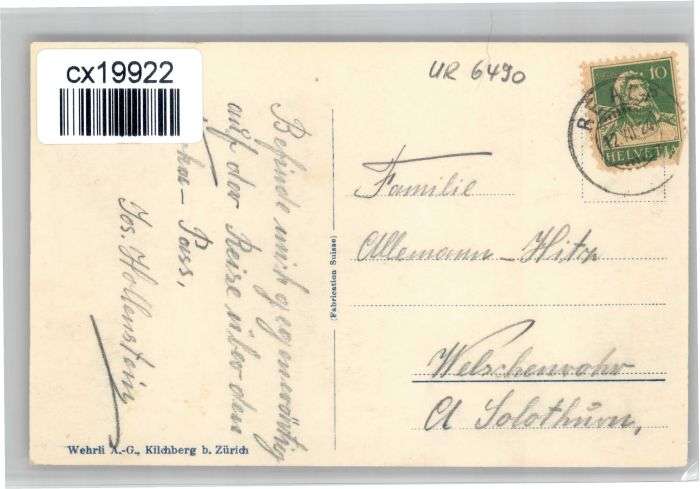 cx19922
UR 6490
10
HELVETIA
Befinde mich gegenwärtig
auf der Reise über den
Pass,
Jos. Hollenstein
(Fabrication Suisse)
Familie
Allemann-Hitz
Welschenrohr
Ct Solothurn,
Wehrli A.-G., Kilchberg b. Zürich